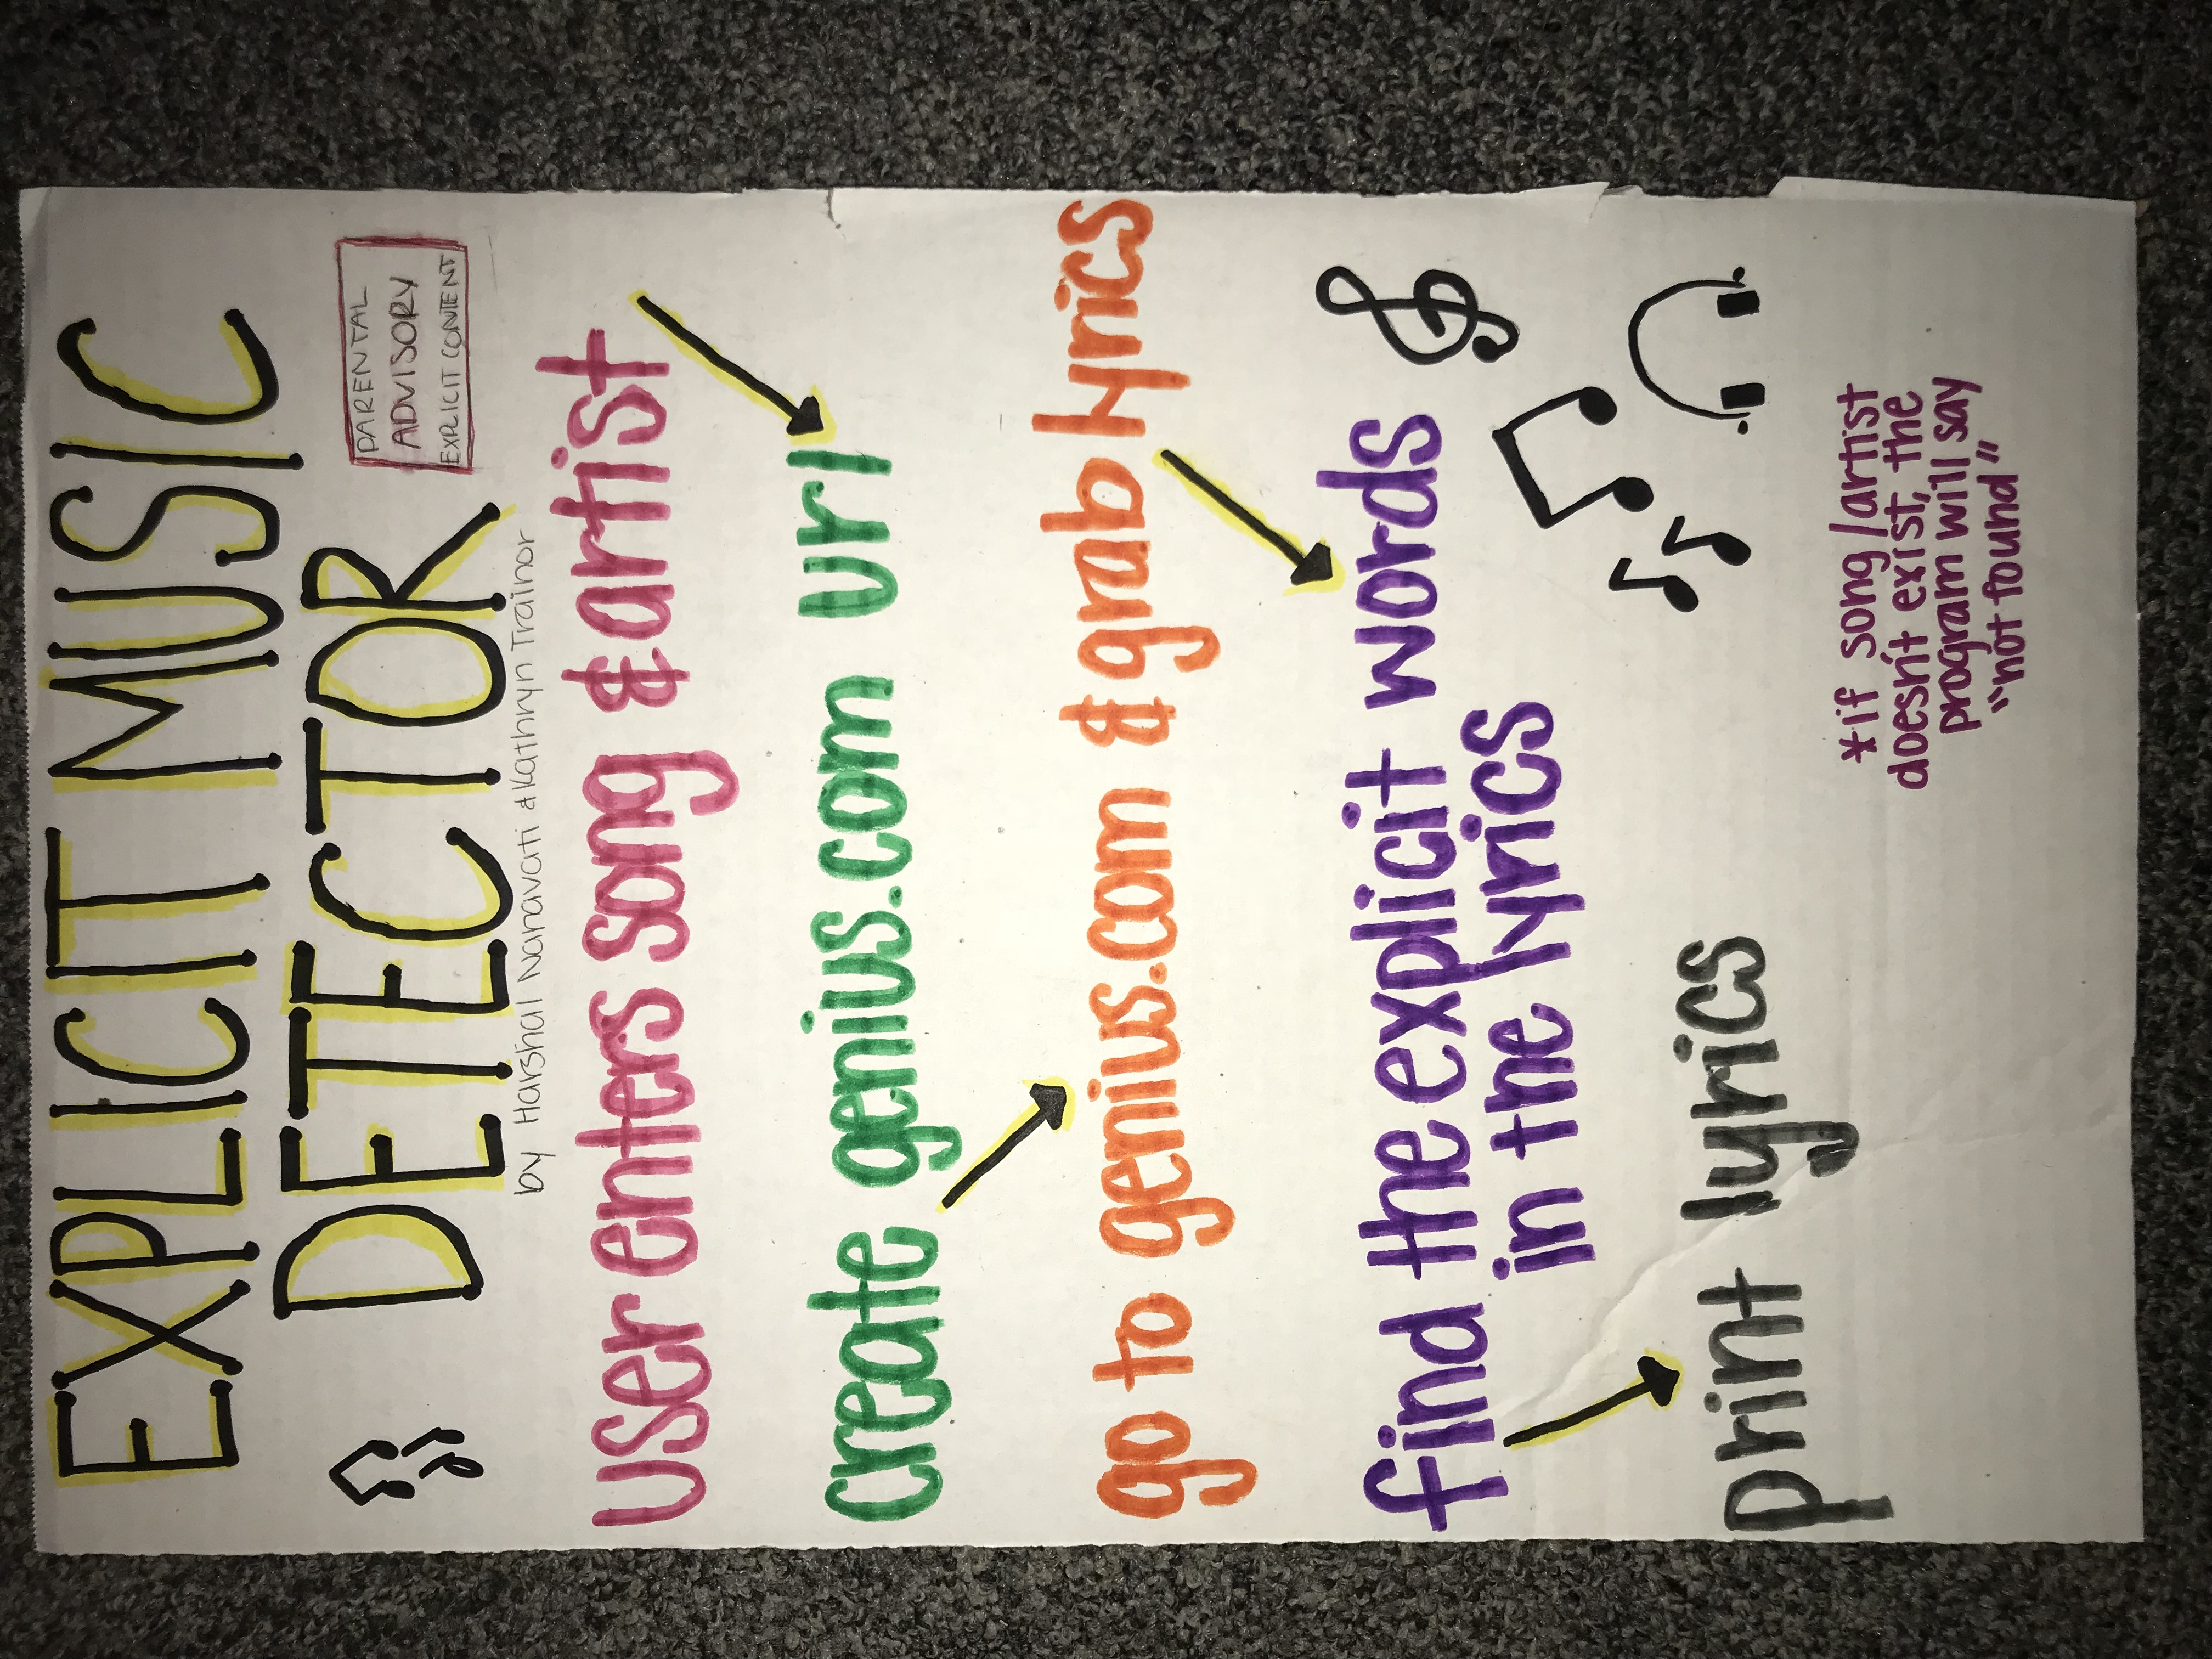 EXPLICIT MUSIC
DETECTOR
PARENTAL
ADVISORY
EXPLICIT CONTENT
by Harshal Nanavati & Kathryn Trainor
user enters song & artist
create genius.com url
go to genius.com & grab lyrics
find the explicit words
in the lyrics
print lyrics
*if song/artist
doesn't exist, the
program will say
"not found"